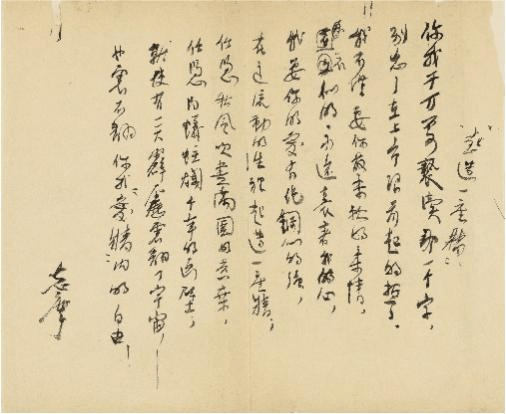 起造一座牆
你我千万不可褻瀆那一个字，
別忘了在上帝跟前起的誓。
我不僅要你最柔軟的柔情，
蕉衣似的永遠裹着我的心，
我要你的愛有純鋼似的強，
在這流動的生裡起造一座牆；
任憑秋風吹盡滿園的黃葉，
任憑白蟻蛀爛千年的画壁；
就使有一天霹靂震翻了宇宙，——
也震不翻你我“愛牆”內的自由！
志摩